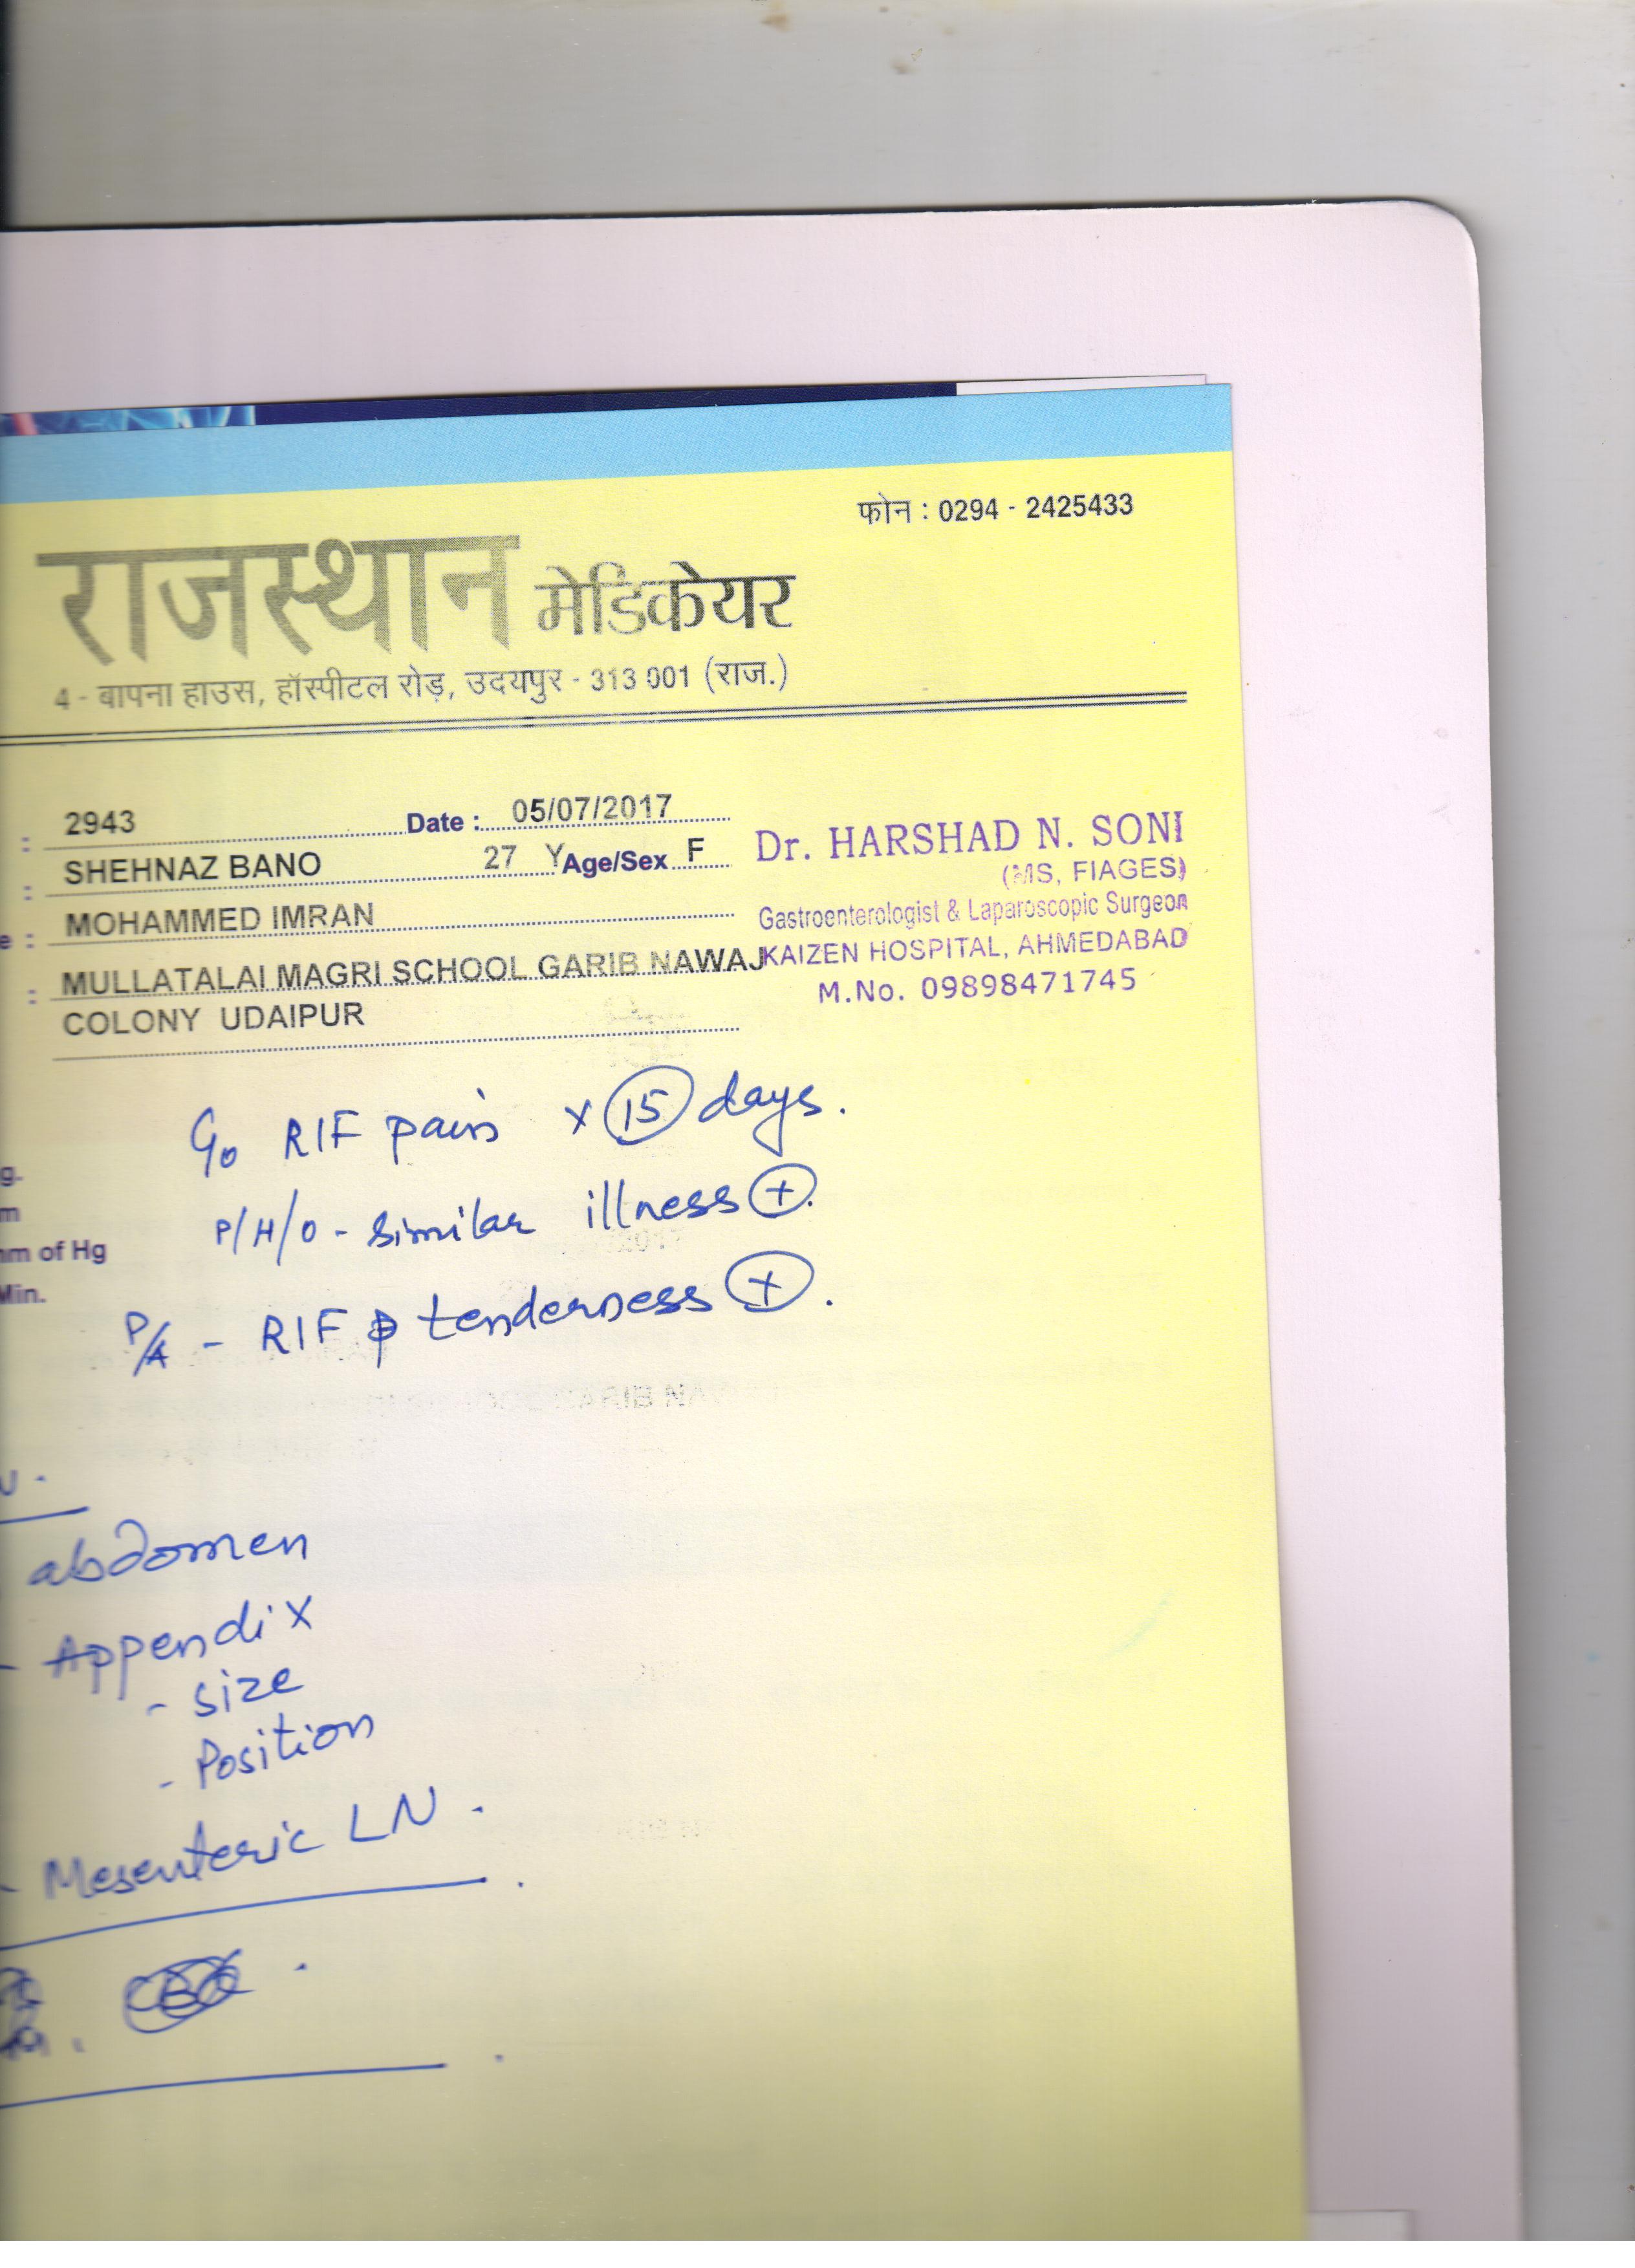 फोन : 0294 - 2425433
राजस्थान मेडिकेयर
4 - बापना हाउस, हॉस्पीटल रोड़, उदयपुर - 313 001 (राज.)
: 2943 Date : 05/07/2017
: SHEHNAZ BANO 27 Y Age/Sex F
e : MOHAMMED IMRAN
: MULLATALAI MAGRI SCHOOL GARIB NAWAJ
COLONY UDAIPUR
Dr. HARSHAD N. SONI
(MS, FIAGES)
Gastroenterologist & Laparoscopic Surgeon
KAIZEN HOSPITAL, AHMEDABAD
M.No. 09898471745
RIF pain x 15 days.
P/H/O - similar illness +.
g.
m
mm of Hg
Min.
P/A - RIF tenderness +.
abdomen
- Appendix
- size
- Position
- Mesenteric LN.